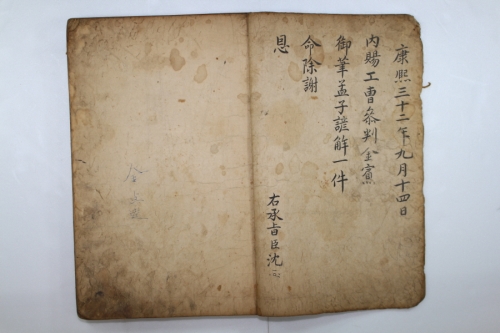 康熙三十二年九月十四日
內賜工曹參判金
御筆孟子諺解一件
命除謝
恩
右承旨臣沈